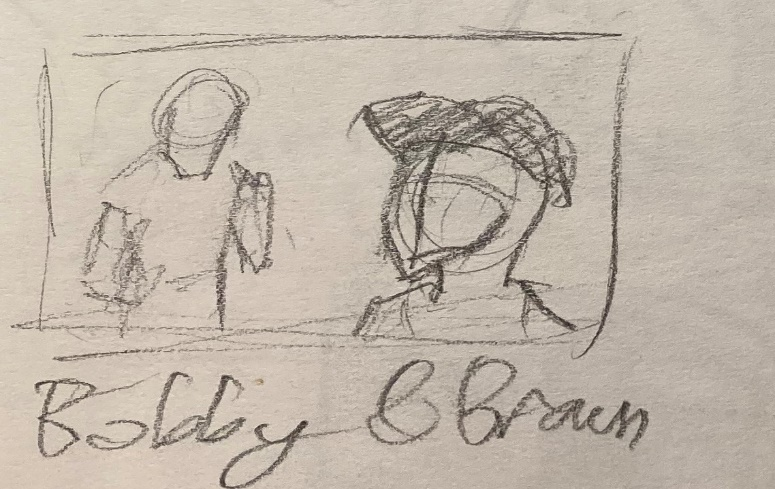 Bobby B Brown